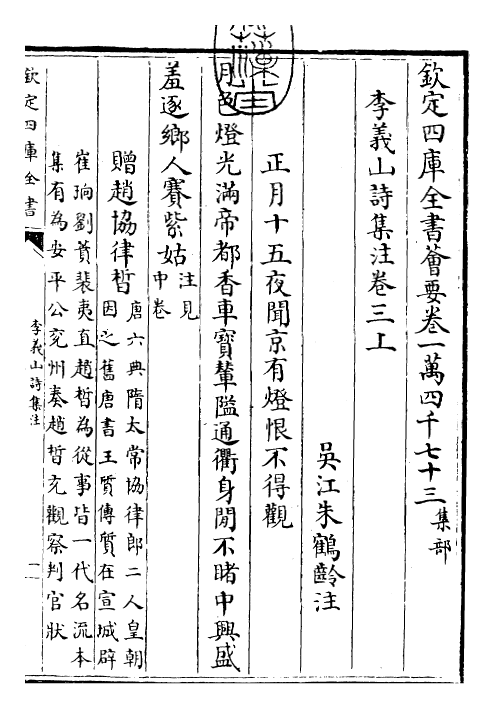 欽定四庫全書薈要卷一萬四千七十三集部
李義山詩集注卷三上
吳江朱鶴齡注
正月十五夜聞京有燈恨不得觀
月色燈光滿帝都香車寶輦隘通衢身閒不睹中興盛
羞逐鄉人賽紫姑注見中卷
贈趙協律晳唐六典隋太常協律郎二人皇朝因之舊唐書王質傳質在宣城辟
崔珦劉蕡裴夷直趙晳為從事皆一代名流本
集有為安平公兖州奏趙晳充觀察判官狀
欽定四庫全書
李義山詩集注
一